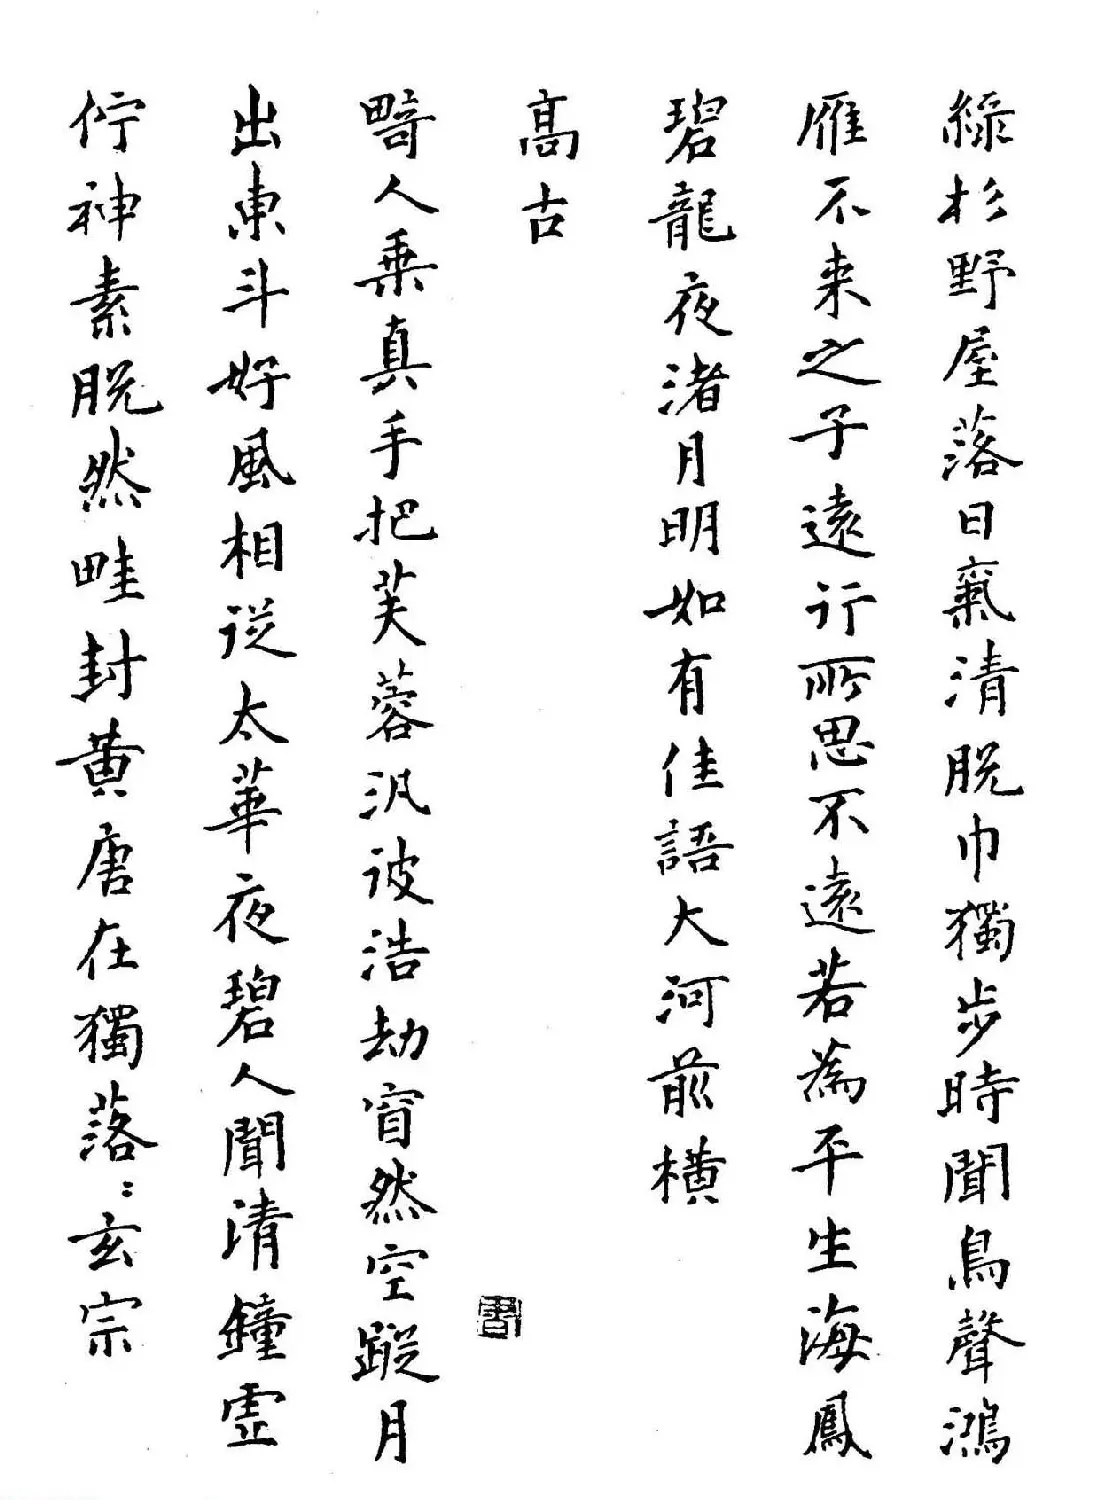 綠杉野屋落日氣清脫巾獨步時聞鳥聲鴻
雁不来之子遠行所思不遠若為平生海鳳
碧龍夜渚月明如有佳語大河前橫
髙古
畸人乗真手把芙蓉汎彼浩劫窅然空蹤月
出東斗好風相從太華夜碧人聞清鐘虚
佇神素脫然畦封黃唐在獨落:玄宗
書